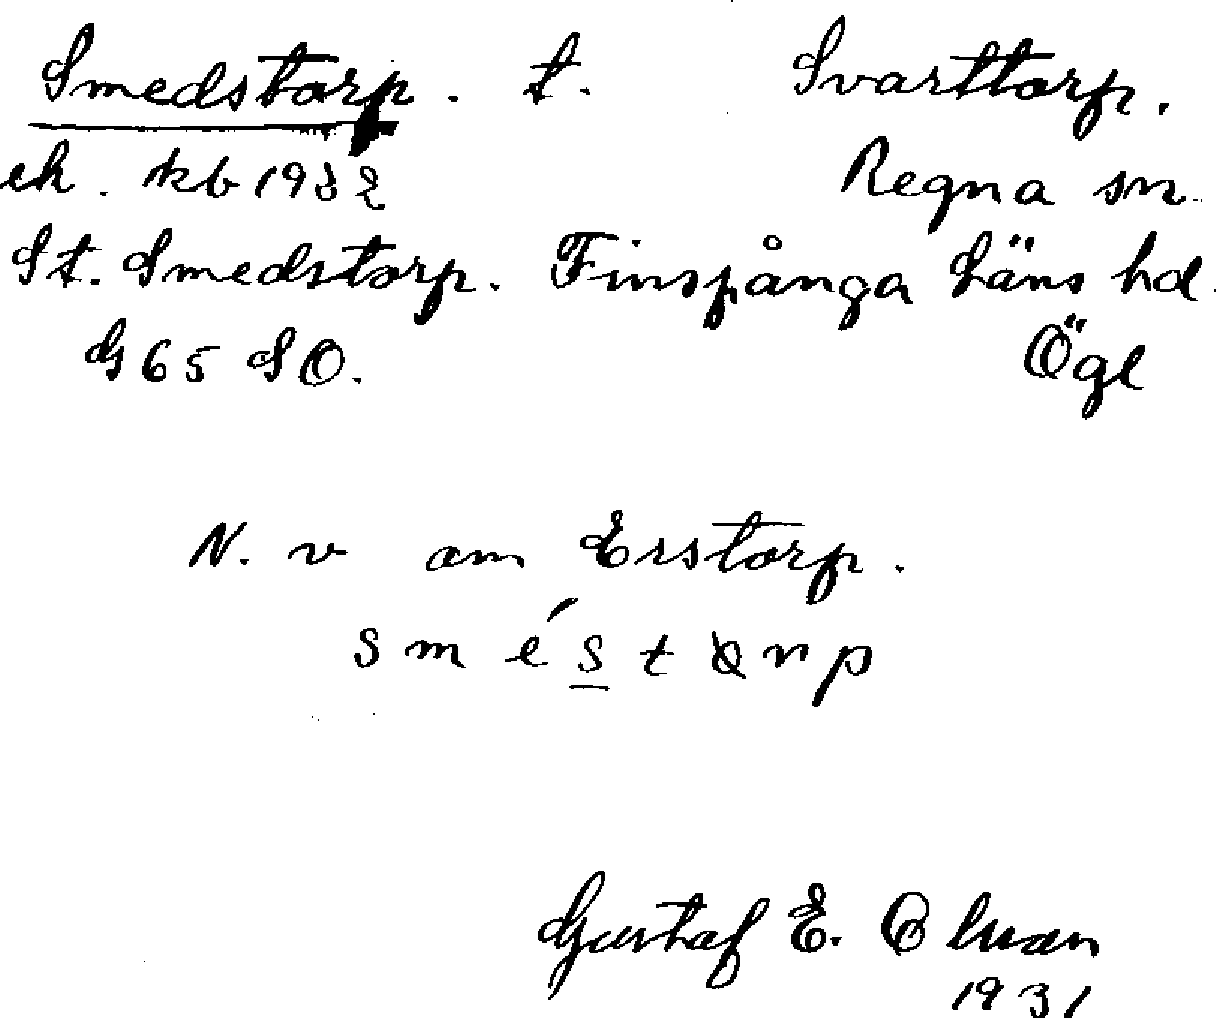 Smedstorp. t. Svarttorp.
ek. kb 1932 Regna sn.
St. Smedstorp. Finspånga Läns hd.
G 65 SO. Ögl
N. v om Erstorp.
s m é s t ɷ r p
Gustaf E. Olsson
1931